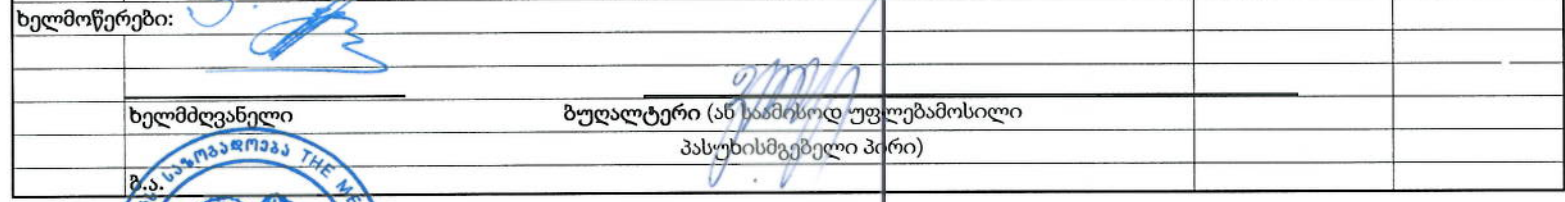 ხელმოწერები:
ხელმძღვანელი ბუღალტერი (ან საამისოდ უფლებამოსილი
პასუხისმგებელი პირი)
ბ.ა.
საზოგადოება THE ME